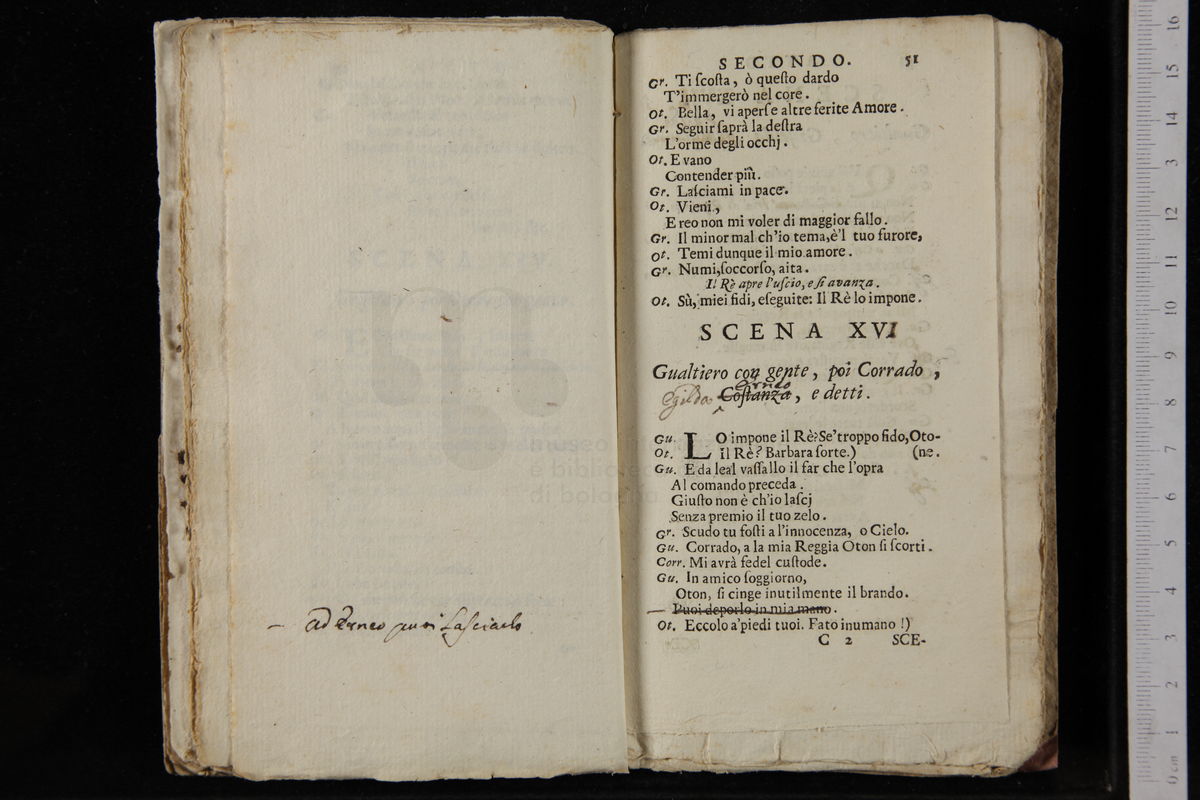 — ad Erneo puoi lasciarlo
SECONDO. 51
Gr. Ti ſcoſta, ò queſto dardo
T'immergerò nel core.
Ot. Bella, vi aperſe altre ferite Amore.
Gr. Seguir ſaprà la deſtra
L'orme degli occhj.
Ot. E vano
Contender più.
Gr. Laſciami in pace.
Ot. Vieni,
E reo non mi voler di maggior fallo.
Gr. Il minor mal ch'io tema, è'l tuo furore,
Ot. Temi dunque il mio amore.
Gr. Numi, ſoccorſo, aita.
Il Rè apre l'uſcio, e ſi avanza.
Ot. Sù, miei fidi, eſeguite: Il Rè lo impone.
SCENA XVI
Gualtiero con gente, poi Corrado,
Erneo
Egilda Coſtanza, e detti.
Gu. LO impone il Rè? Se' troppo fido, Oto-
Ot. Il Rè? Barbara ſorte.) (ne.
Gu. E da leal vaſſallo il far che l'opra
Al comando preceda.
Giuſto non è ch'io laſcj
Senza premio il tuo zelo.
Gr. Scudo tu foſti a l'innocenza, o Cielo.
Gu. Corrado, a la mia Reggia Oton ſi ſcorti.
Corr. Mi avrà fedel cuſtode.
Gu. In amico ſoggiorno,
Oton, ſi cinge inutilmente il brando.
— Puoi deporlo in mia mano.
Ot. Eccolo a' piedi tuoi. Fato inumano!)
C 2 SCE-